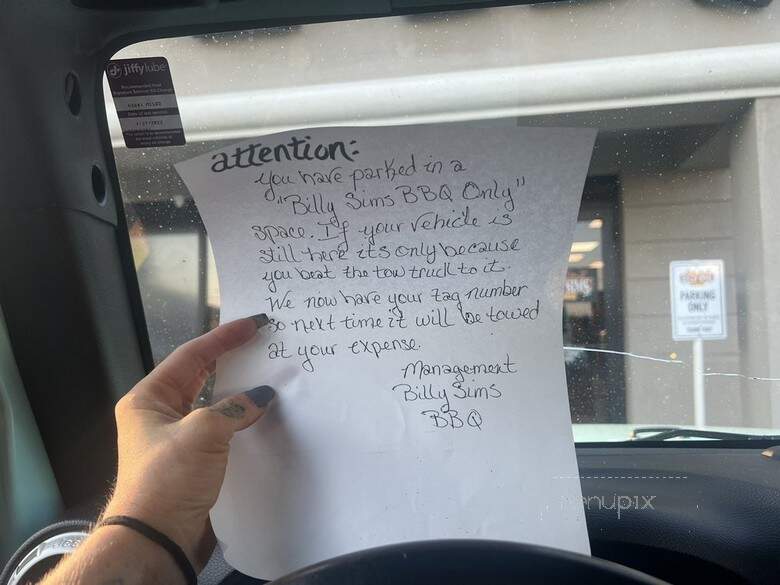 jiffylube
attention:
you have parked in a
"Billy Sims BBQ Only"
space. If your vehicle is
still here its only because
you beat the tow truck to it.
We now have your tag number
so next time it will be towed
at your expense.
Management
Billy Sims
BBQ
PARKING
ONLY
menupix